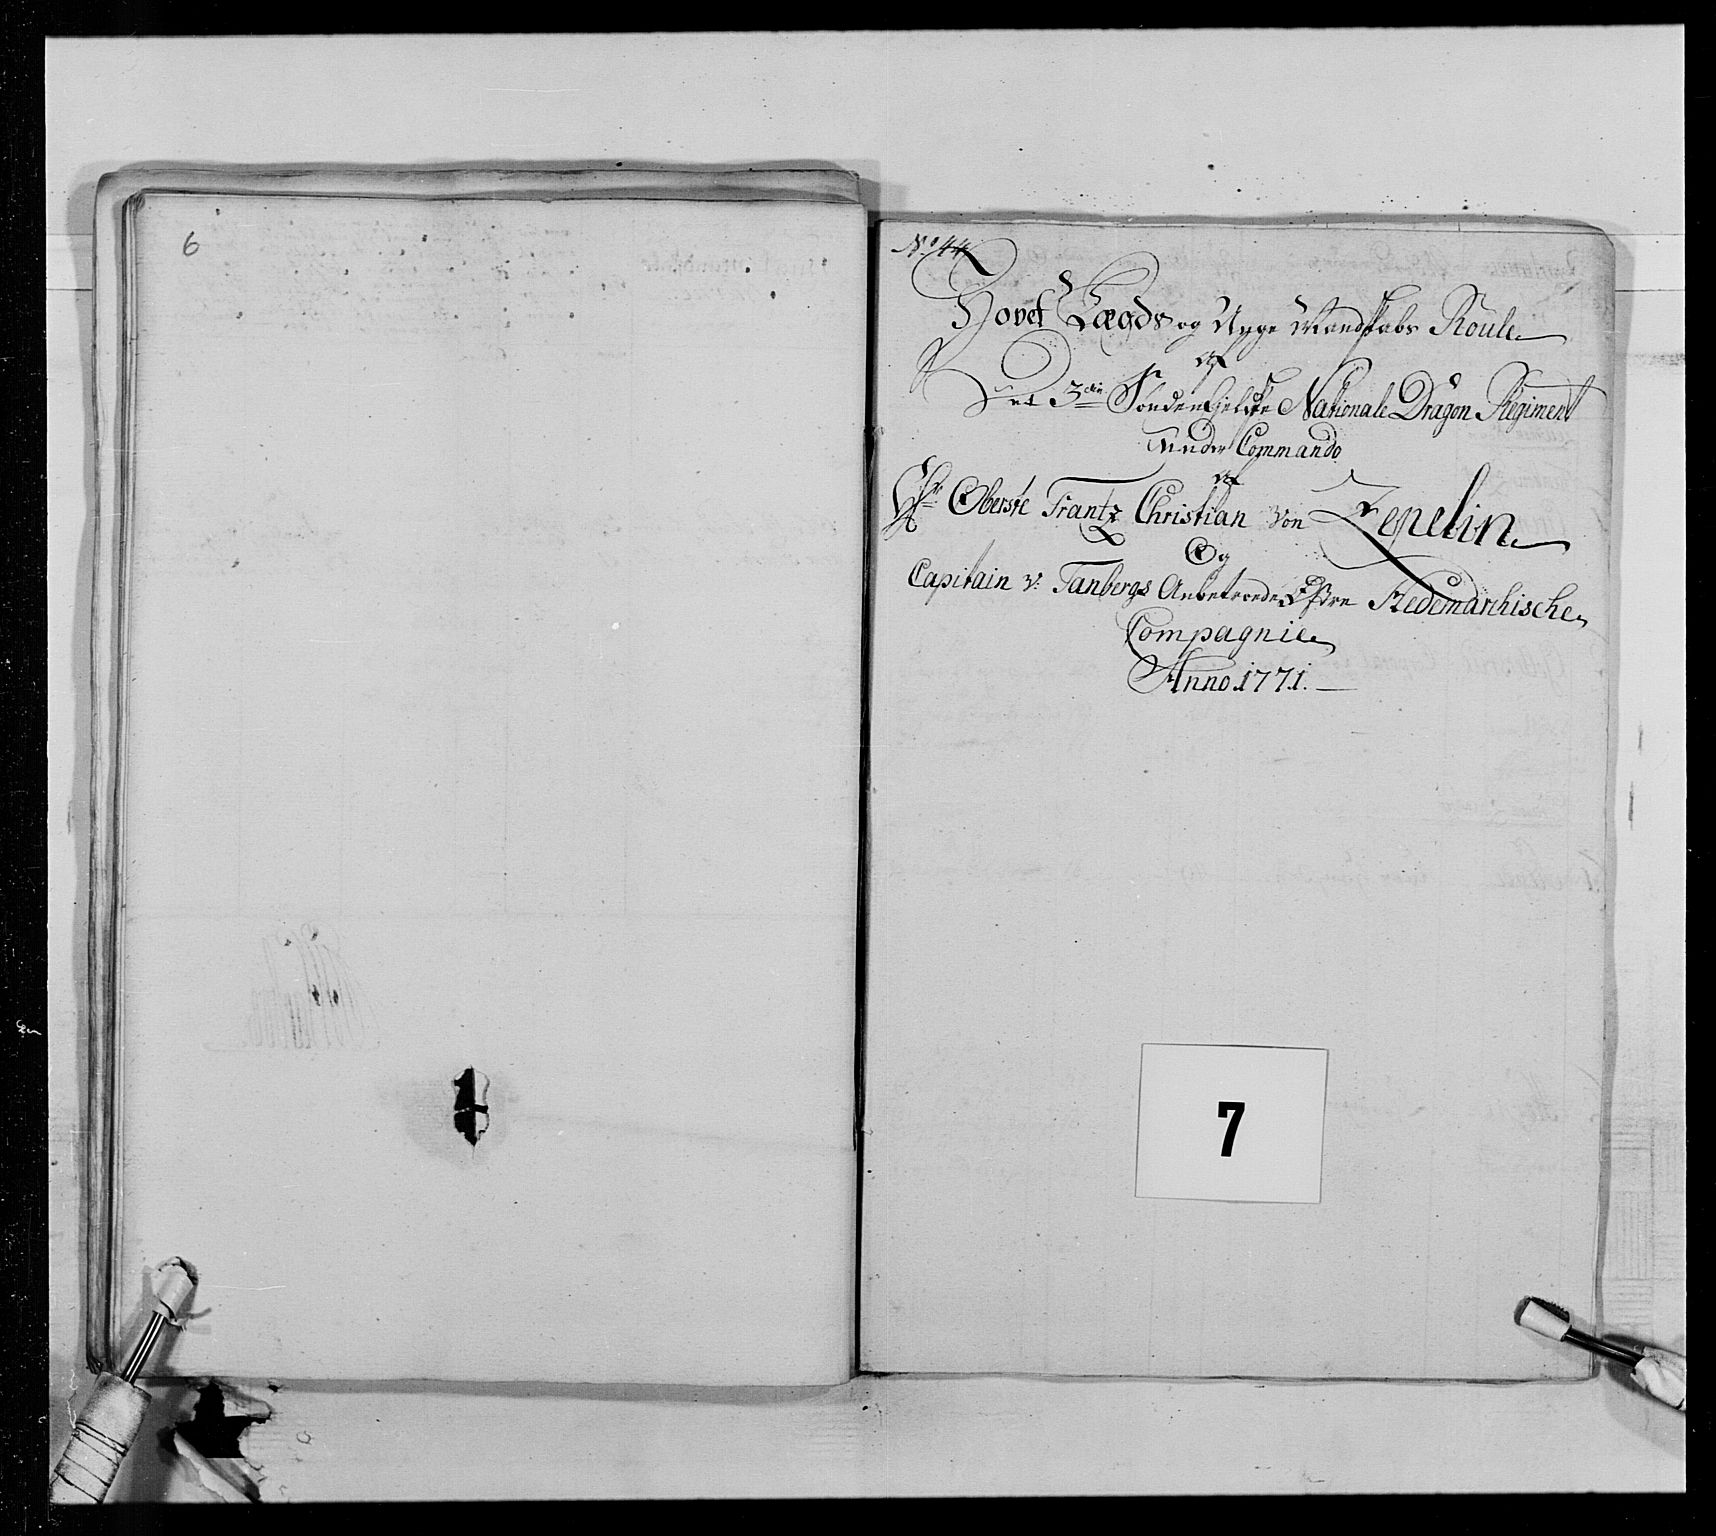 6
No 44
Hovet Lægds og Unge Mandskabs Roule
af
Det 3die Søndenfielske Nationale Dragon Regiment
Under Commando
af
Hr Oberste Frantz Christian von Zepelin
Og
Capitain v: Tanbergs Anbetroede Østre Hedemarchische
Compagnie
Anno 1771.
7